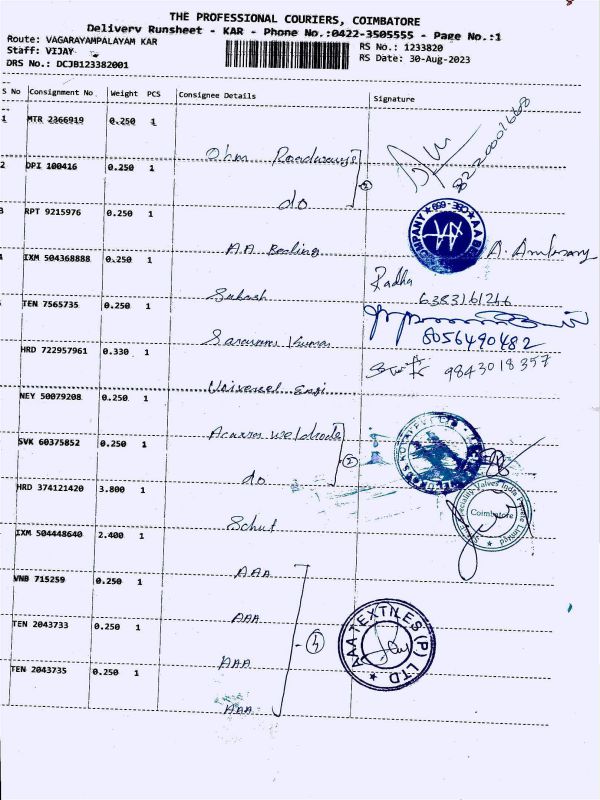 THE PROFESSIONAL COURIERS, COIMBATORE
Delivery Runsheet - KAR - Phone No.:0422-3505555 - Page No.:1
Route: VAGARAYAMPALAYAM KAR
RS No.: 1233820
Staff: VIJAY
RS Date: 30-Aug-2023
DRS No.: DCJB123382001
S No Consignment No Weight PCS Consignee Details Signature
1 MTR 2366919 0.250 1
Ohm Roadways
8220001668
2 DPI 100416 0.250 1
do
3 RPT 9215976 0.250 1
COMPANY ★ 699-360 ★ A.A
A A Bealing
4 IXM 504368888 0.250 1
Radha
Subash
6383161266
TEN 7565735 0.250 1
Saravana Kumar
8056490482
HRD 722957961 0.330 1
9843018357
Universal Engi
NEY 50079208 0.250 1
Acarros weldrods
SVK 60375852 0.250 1
2
do
HRD 374121420 3.800 1
Coimbatore
Schut
IXM 504448640 2.400 1
AAA
VNB 715259 0.250 1
AAA
TEN 2043733 0.250 1
4
AAA TEXTILES (P) LTD
AAA
TEN 2043735 0.250 1
AAA